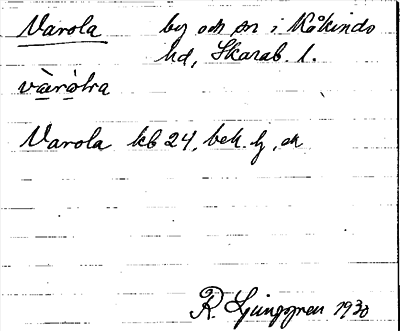 Varola by och sn i Kåkinds
hd, Skarab. l.
Varola kb 24, bek. lj, ek
R. Ljunggren 1930